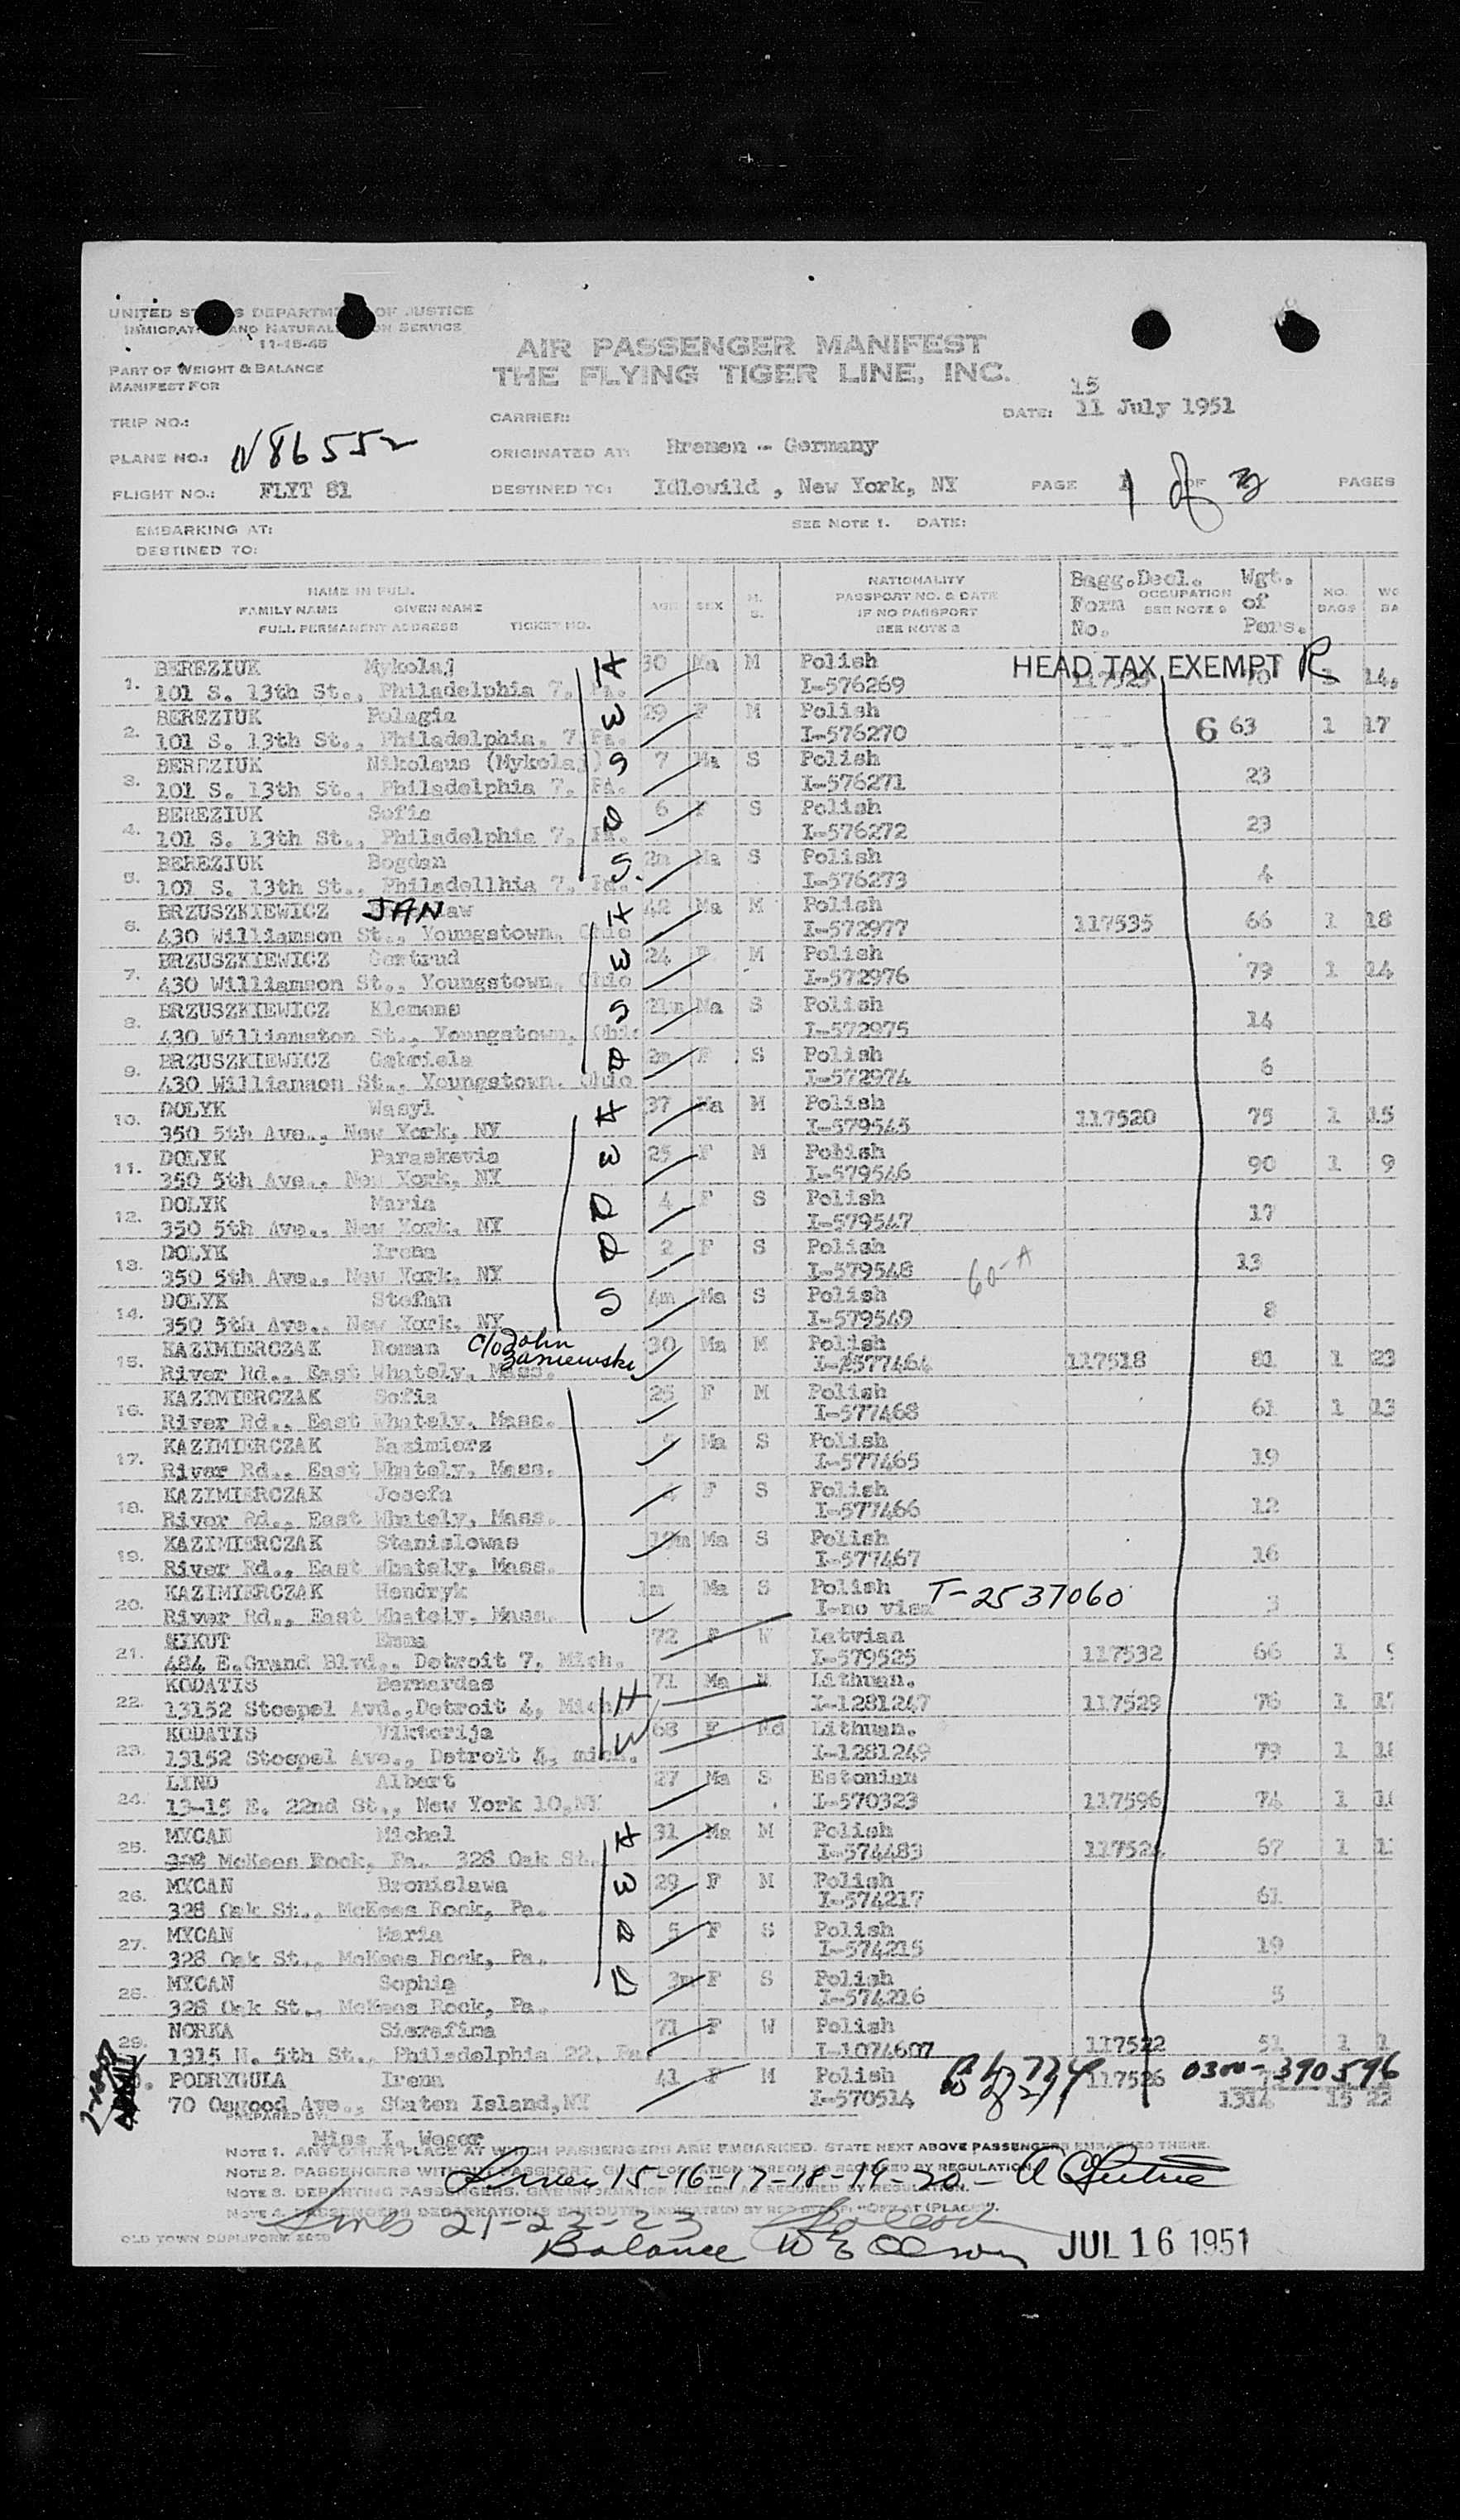 UNITED STATES DEPARTMENT OF JUSTICE
IMMIGRATION AND NATURALIZATION SERVICE
11-15-45
AIR PASSENGER MANIFEST
THE FLYING TIGER LINE, INC.
PART OF WEIGHT & BALANCE
MANIFEST FOR
15
TRIP NO.: CARRIER: DATE: 11 July 1951
PLANE NO.: N86552 ORIGINATED AT: Bremen -- Germany
FLIGHT NO.: FLYT 81 DESTINED TO: Idlewild , New York, NY PAGE 1 OF 3 PAGES
EMBARKING AT: SEE NOTE 1. DATE:
DESTINED TO:
NAME IN FULL NATIONALITY Bagg.Decl. Wgt.
FAMILY NAME GIVEN NAME AGE SEX M. S. PASSPORT NO. & DATE Form OCCUPATION of NO.
FULL PERMANENT ADDRESS TICKET NO. IF NO PASSPORT No. SEE NOTE 2 Pers. BAGS
SEE NOTE 3
1. BEREZIUK Mykolaj H 30 Ma M Polish HEAD TAX EXEMPT R
101 S. 13th St., Philadelphia 7, Pa. I-576269 14.
2. BEREZIUK Pelagia W 29 F M Polish
101 S. 13th St., Philadelphia. 7 Pa. I-576270 6 63 1 17
3. BEREZIUK Nikolaus (Mykolaj) S 7 Ma S Polish
101 S. 13th St., Philadelphia 7, PA. I-576271 23
4. BEREZIUK Sofia D 6 F S Polish
101 S. 13th St., Philadelphia 7, Pa. I-576272 23
5. BEREZIUK Bogdan S. 2m Ma S Polish
101 S. 13th St., Philadellhia 7, Pa. I-576273 4
6. BRZUSZKIEWICZ JAN H 42 Ma M Polish
430 Williamson St., Youngstown, Ohio I-572977 117535 66 1 18
7. BRZUSZKIEWICZ Gertrud W 24 F M Polish
430 Williamson St., Youngstown, Ohio I-572976 79 1 14
8. BRZUSZKIEWICZ Klemens S 21m Ma S Polish
430 Williamston St., Youngstown, Ohio I-572975 14
9. BRZUSZKIEWICZ Gabriela D 2m F S Polish
430 Williamson St., Youngstown. Ohio I-572974 6
10. DOLYK Wasyl H 37 Ma M Polish
350 5th Ave., New York, NY I-579545 117520 75 1 15
11. DOLYK Paraskevia W 25 F M Polish
350 5th Ave., New York, NY I-579546 90 1 9
12. DOLYK Maria D 4 F S Polish
350 5th Ave., New York, NY I-579547 17
13. DOLYK Irena D 2 F S Polish
350 5th Ave., New York, NY I-579548 60-A 13
14. DOLYK Stefan S 4m Ma S Polish
350 5th Ave., New York, NY I-579549 8
15. KAZIMIERCZAK Roman c/o John Zaniewski 30 Ma M Polish
River Rd., East Whately, Mass. I-577464 117518 81 1 23
16. KAZIMIERCZAK Sofia 25 F M Polish
River Rd., East Whately, Mass. I-577468 61 1 13
17. KAZIMIERCZAK Kazimierz 5 Ma S Polish
River Rd., East Whately, Mass. I-577465 19
18. KAZIMIERCZAK Josefa 4 F S Polish
River Rd., East Whately, Mass. I-577466 12
19. KAZIMIERCZAK Stanislowas Ma S Polish
River Rd., East Whately, Mass. I-577467 16
20. KAZIMIERCZAK Hendryk 1m Ma S Polish T-2537060
River Rd., East Whately, Mass. I-no visa 3
21. MIKUT Emma 72 F W Latvian
484 E.Grand Blvd., Detroit 7, Mich. I-579525 117532 66 1 9
22. KODATIS Bernardas H 71 Ma M Lithuan.
13152 Stoepel Avd.,Detroit 4, Mich. I-1281247 117529 76 1 17
23. KODATIS Viktorija W 68 F Md Lithuan.
13152 Stoepel Ave., Detroit 4, mich. I-1281249 79 1
24. LIND Albert 27 Ma S Estonian
13-15 E. 22nd St., New York 10,NY I-570323 117596 74 1
25. MYCAN Michal H 31 Ma M Polish
328 McKees Rock, Pa. 328 Oak St. I-574483 117524 67 1
26. MYCAN Bronislawa W 29 F M Polish
328 Oak St., McKees Rock, Pa. I-574217 61
27. MYCAN Maria D 5 F S Polish
328 Oak St., McKees Rock, Pa. I-574215 19
28. MYCAN Sophie D 3m F S Polish
328 Oak St., McKees Rock, Pa. I-574216 5
29. NORKA Sierafima 71 F W Polish
1315 N. 5th St., Philadelphia 22, Pa. I-1074607 117522 51 1 1
PODRYGULA Irena 41 F M Polish 117526 0300-390596
70 Osgood Ave., Staten Island,NY I-570514 1314 15 22
PREPARED BY:
Miss I. Weger
NOTE 1. ANY OTHER PLACE AT WHICH PASSENGERS ARE EMBARKED. STATE NEXT ABOVE PASSENGERS EMBARKED THERE.
NOTE 2. PASSENGERS WITHOUT PASSPORT, GIVE INFORMATION HEREON AS REQUIRED BY REGULATION.
NOTE 3. DEPARTING PASSENGERS. GIVE INFORMATION HEREON AS REQUIRED BY REGULATION.
15-16-17-18-19-20-
Lines 21-22-23
OLD TOWN DUPLIFORM
Balance W E Olson JUL 16 1951